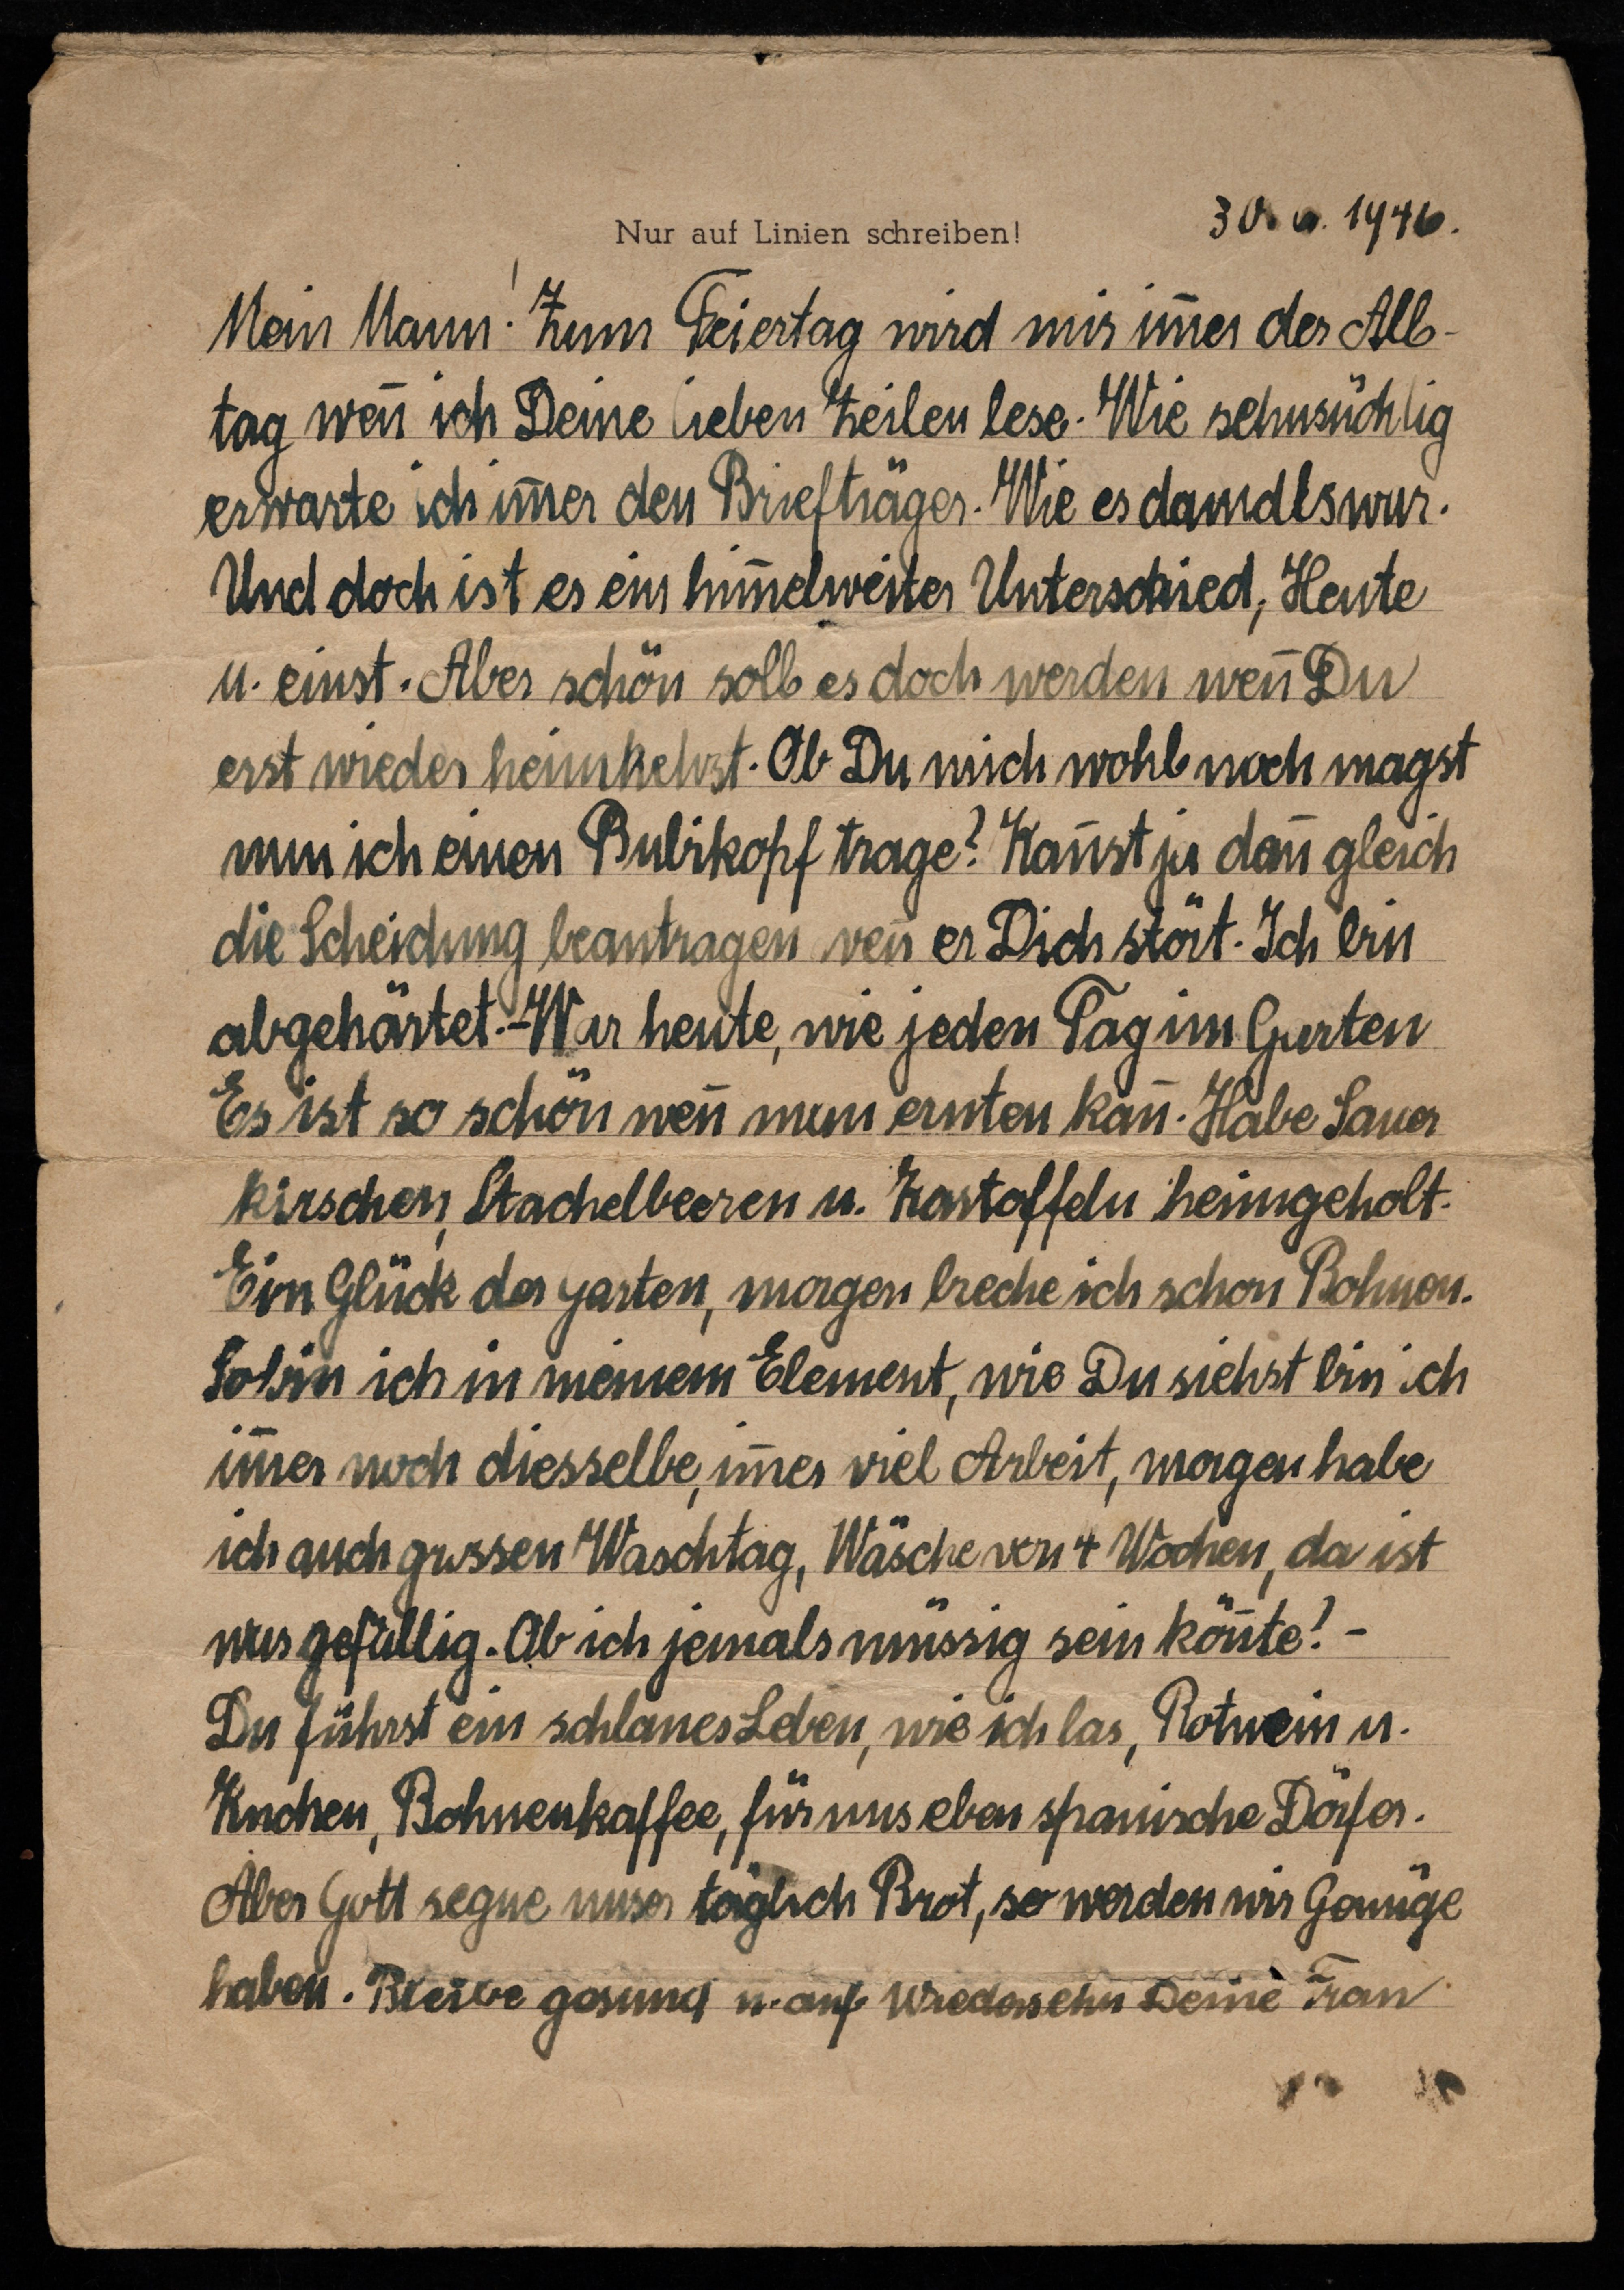 Nur auf Linien schreiben!
30. 6. 1946.
Mein Mann! Zum Feiertag wird mir im̅er der All-
tag wen̅ ich Deine lieben Zeilen lese. Wie sehnsüchtig
erwarte ich im̅er den Briefträger. Wie es damals war.
Und doch ist es ein him̅elweiter Unterschied, Heute
u. einst. Aber schön soll es doch werden wen̅ Du
erst wieder heimkehrst. Ob Du mich wohl noch magst
nun ich einen Bubikopf trage? Kan̅st ja dan̅ gleich
die Scheidung beantragen wen̅ er Dich stört. Ich bin
abgehärtet. - War heute, wie jeden Tag im Garten
Es ist so schön wen̅ man ernten kan̅. Habe Sauer
kirschen, Stachelbeeren u. Kartoffeln heimgeholt.
Ein Glück der garten, morgen breche ich schon Bohnen.
So bin ich in meinem Element, wie Du siehst bin ich
im̅er noch diesselbe, im̅er viel Arbeit, morgen habe
ich auch grossen Waschtag, Wäsche von 4 Wochen, da ist
was gefällig. Ob ich jemals müssig sein kön̅te? -
Du führst ein schlaues Leben, wie ich las, Rotwein u.
Kuchen, Bohnenkaffee, für uns eben spanische Dörfer.
Aber Gott segne unser täglich Brot, so werden wir Genüge
haben. Bleibe gesund u. auf Wiedersehn Deine Frau